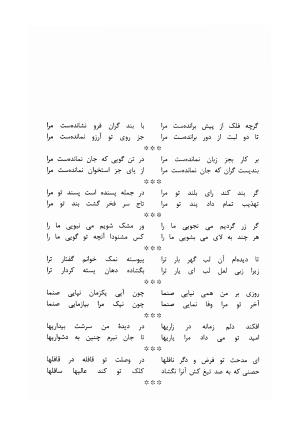 گرچه فلک از پیش برانده‌ست مرا با بند گران فرو نشانده‌ست مرا
تا دو لبت از دور برانده‌ست مرا جز روی تو آرزو نمانده‌ست مرا
***
بر کار بجز زبان نمانده‌ست مرا در تن گویی که جان نمانده‌ست مرا
بندیست گران که جان نمانده‌ست مرا از پای جز استخوان نمانده‌ست مرا
***
گر بند کند رای بلند تو مرا در جمله پسنده است پسند تو مرا
تهذیب تمام داد پند تو مرا تاج سر فخر گشت بند تو مرا
***
گر زر گردیم می نجویی ما را ور مشک شویم می نبویی ما را
هر چند به لای می بشویی ما را کس مشنودا آنچه تو گویی ما را
***
تا دیده‌ام آن لب گهر بار ترا پیوسته نمک خوانم گفتار ترا
زیرا زبی لعل لب ای یار ترا بگشاده دهان پسته کردار ترا
***
روزی بر من همی نیایی صنما چون آیی یکزمان نپایی صنما
آخر تو مرا وفا نمایی صنما چون نیک مرا بیازمایی صنما
***
افکند دلم زمانه در زاریها در دیدهٔ من سرشت بیداریها
امید تو می داد مرا یاریها تا جان نبرم چنین به دشواریها
***
ای مدحت تو فرض و دگر نافلها در وصلت تو قافله در قافلها
حصنی که به صد تیغ کش آنرا نگشاد کلک تو کند عالیها سافلها
***